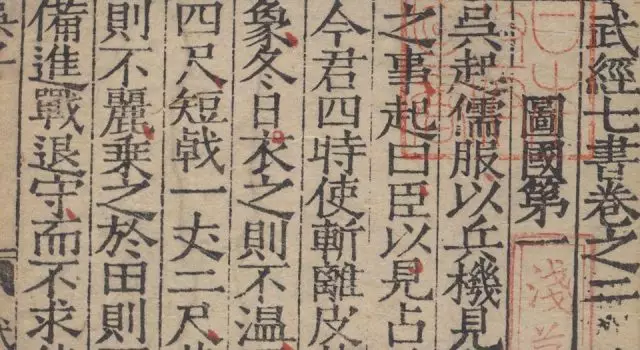 武經七書卷之三
圖國第一
吳起儒服以兵機見
之事起曰臣以見占
今君四時使斬離皮
象冬日衣之則不温
四尺短戟一丈二尺
則不麗乗之於田則
備進戰退守而不求
淺草